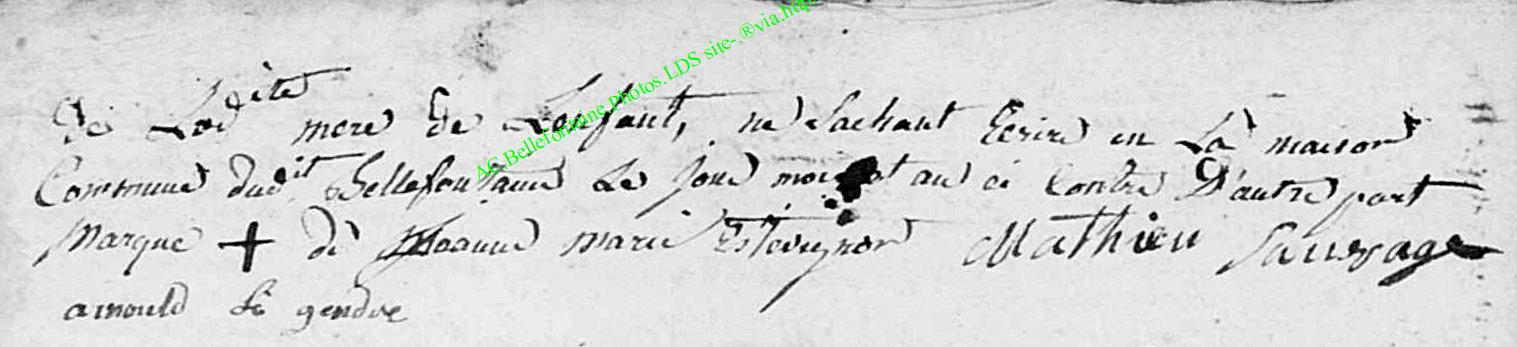 De Lad^ite mere de Lenfant, ne Sachant Ecrire en La maison
Commune dud^it Bellefontaine Le Jour mois et an ci Contre D'autre part
marque + de Jeanne marie Mathieu Sauvage
arnould Le gendre
AC.Bellefontaine.Photos.LDS site-.®via.http